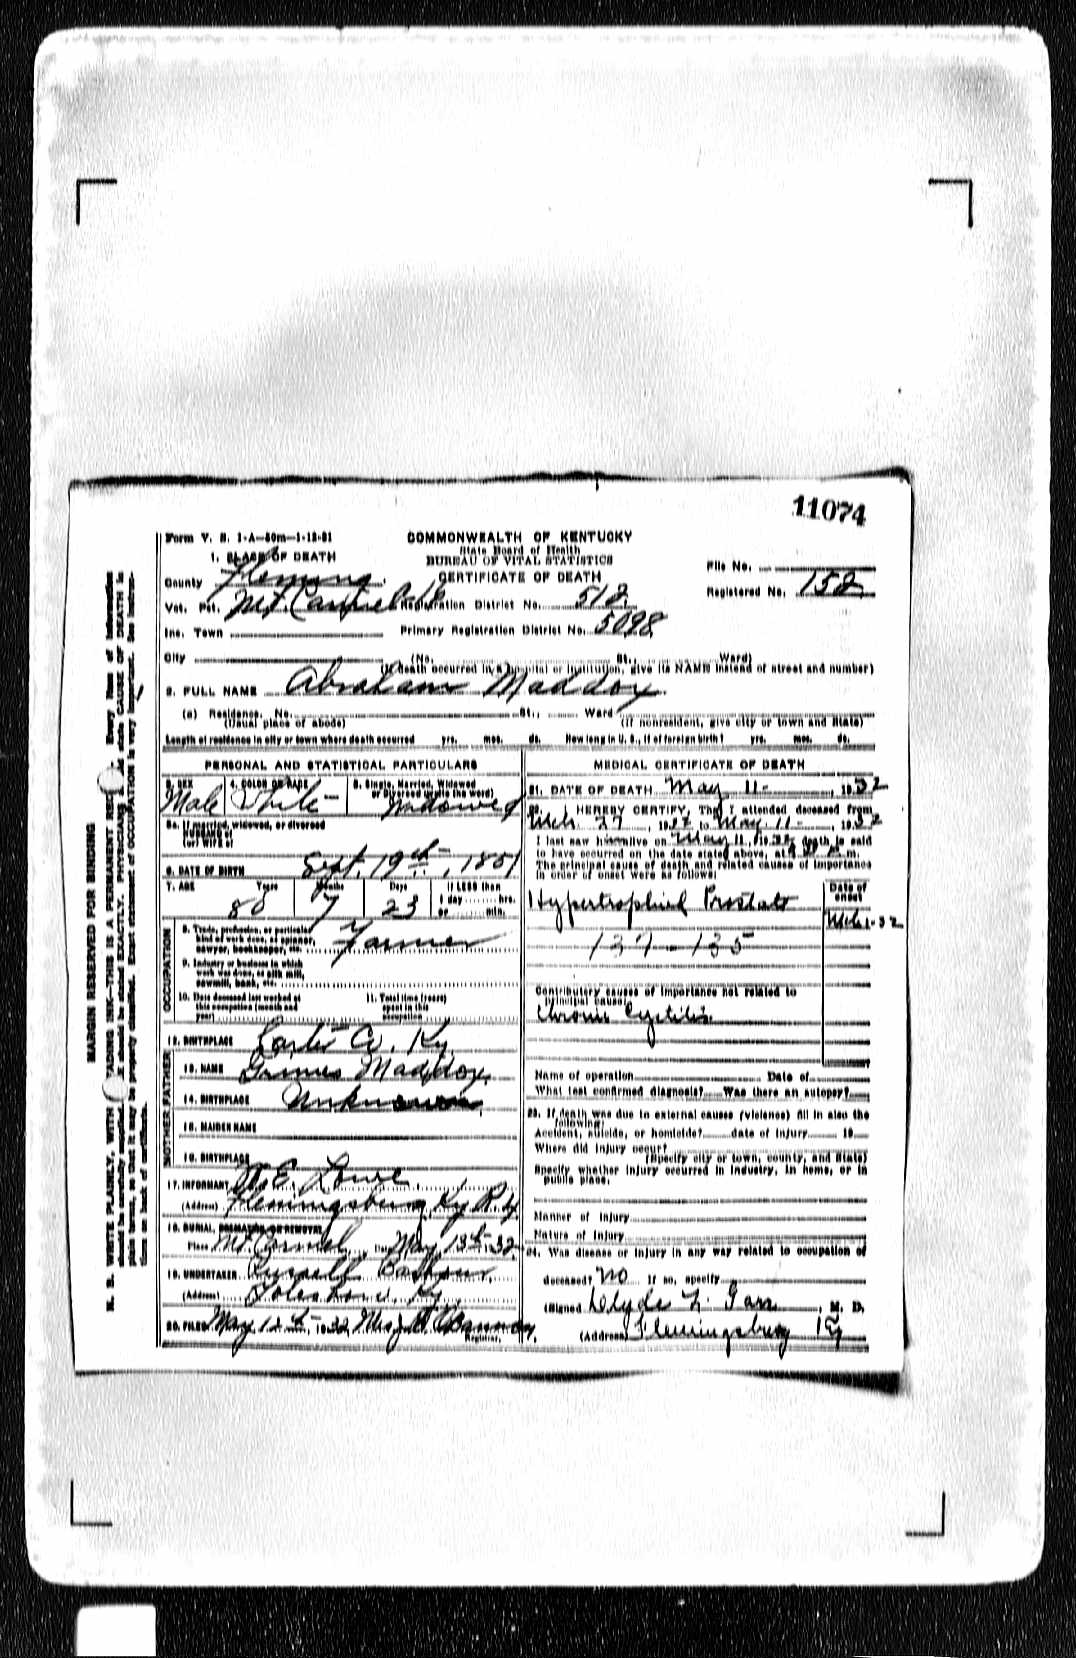 11074
Form V. S. 1-A—50m—1-12-31
COMMONWEALTH OF KENTUCKY
State Board of Health
BUREAU OF VITAL STATISTICS
CERTIFICATE OF DEATH
1. PLACE OF DEATH
File No.
County Fleming
Registered No. 152
Vot. Pct. Mt Carmel Registration District No. 512
Inc. Town Primary Registration District No. 5098
City (No. St., Ward)
(If death occurred in a hospital or institution, give its NAME instead of street and number)
2. FULL NAME Abraham Maddox
(a) Residence. No. St., Ward
(Usual place of abode) (If nonresident, give city or town and State)
Length of residence in city or town where death occurred yrs. mos. ds. How long in U. S., if of foreign birth? yrs. mos. ds.
PERSONAL AND STATISTICAL PARTICULARS
3. SEX 4. COLOR OR RACE 5. Single, Married, Widowed
or Divorced (write the word)
Male White Widowed
5a. If married, widowed, or divorced
HUSBAND of
(or) WIFE of
6. DATE OF BIRTH Sept. 19th, 1851
7. AGE Years Months Days If LESS than
1 day hrs.
or min.
80 7 23
OCCUPATION
8. Trade, profession, or particular
kind of work done, as spinner,
sawyer, bookkeeper, etc. Farmer
9. Industry or business in which
work was done, as silk mill,
sawmill, bank, etc.
10. Date deceased last worked at
this occupation (month and
year)
11. Total time (years)
spent in this
occupation
12. BIRTHPLACE Carter Co. Ky
FATHER
13. NAME Grimes Maddox
14. BIRTHPLACE Unknown
MOTHER
15. MAIDEN NAME
16. BIRTHPLACE
17. INFORMANT E. Lowe
(Address) Flemingsburg Ky R. 4
18. BURIAL, CREMATION OR REMOVAL
Place Mt. Carmel May 13th 32
19. UNDERTAKER Russell
(Address) Ky.
20. FILED May 12th, 1932 Mrs
Registrar.
MEDICAL CERTIFICATE OF DEATH
21. DATE OF DEATH May 11-, 1932
22. I HEREBY CERTIFY, That I attended deceased from
Mch 27, 1932 to May 11-, 1932
I last saw him alive on May 11, 1932 death is said
to have occurred on the date stated above, at m.
The principal cause of death and related causes of importance
in order of onset were as follows:
Date of
onset
Hypertrophied Prostate Mch 1-32
137-135
Contributory causes of importance not related to
principal cause:
Chronic Cystitis
Name of operation Date of
What test confirmed diagnosis? Was there an autopsy?
23. If death was due to external causes (violence) fill in also the
following:
Accident, suicide, or homicide? date of injury 19
Where did injury occur?
(Specify city or town, county, and State)
Specify whether injury occurred in industry, in home, or in
public place.
Manner of injury
Nature of injury
24. Was disease or injury in any way related to occupation of
deceased? No If so, specify
(Signed Clyde L. Garr, M. D.
(Address) Flemingsburg Ky
MARGIN RESERVED FOR BINDING
N. B. WRITE PLAINLY, WITH FADING INK—THIS IS A PERMANENT REC Every item of information
should be carefully supplied. should be stated EXACTLY. PHYSICIANS should state CAUSE OF DEATH in
plain terms, so that it may be properly classified. Exact statement of OCCUPATION is very important. See instruc-
tions on back of certificate.